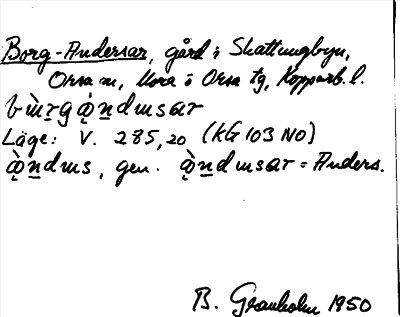 Borg-Andersar, gård i Skattungbyn,
Orsa sn, Mora o Orsa tg, Kopparb. l.
bùrgàndmsar
Läge: V. 285,20 (KG 103 NO)
àndms, gen. àndmsar = Anders.
B. Granholm 1950